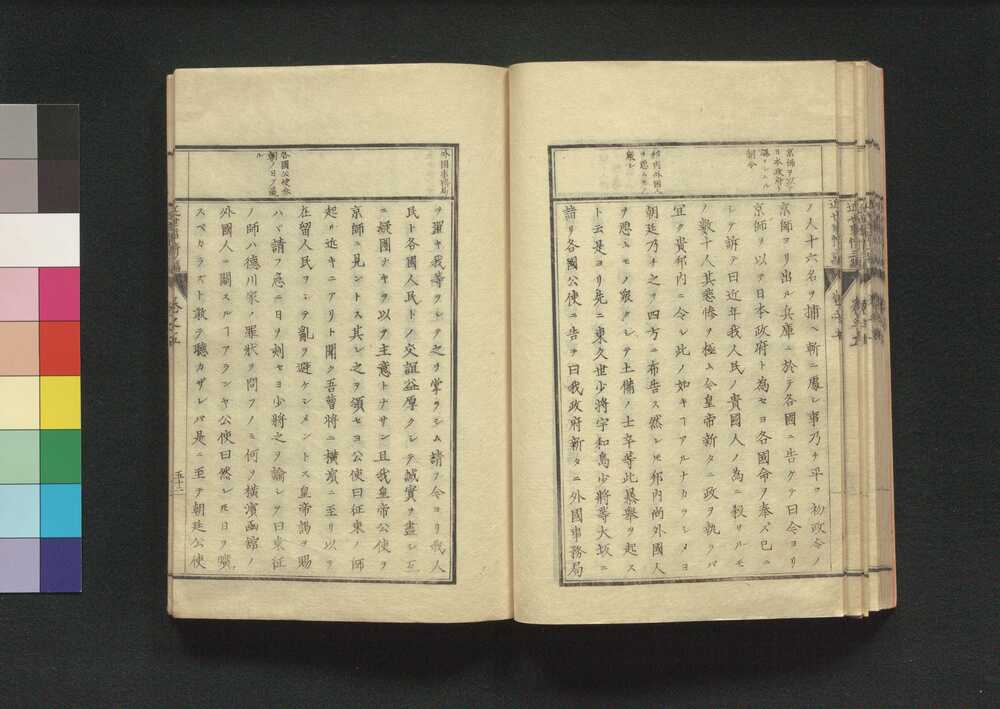 京師ヲ以テ
日本政府ト
為ラシムル
朝令
邦内外國人
ヲ惡ムモノ
衆シ
ノ人十六名ヲ捕ヘ斬ニ處シ事乃チ平ク初政令ノ
京師ヨリ出ル兵庫ニ於テ各國ニ告クテ曰今ヨリ
京師ヲ以テ日本政府ト為セヨ各國命ヲ奉ズ已ニ
シテ訴テ曰近年我人民ノ貴國人ノ為ニ殺サルヽモ
ノ數十人其悲惨ヲ極ム今皇帝新タニ政ヲ執ラバ
宜ク貴邦内ニ令シ此ノ如キヿアルナカラシメヨ
朝廷乃チ之ヲ四方ニ布告ス然レ𪜈邦内尚外國人
ヲ惡ムモノ衆クシテ土備ノ士卒等此暴舉ヲ起ス
ト云是ヨリ先ニ東久世少將宇和島少將等大坂ニ
詣リ各國公使ニ告テ曰我政府新タニ外國事務局
外國事務局
各國公使参
朝ノ日ヲ議
ル
ヲ置キ我等ヲシテ之ヲ掌ラシム請フ今ヨリ我人
民ト各國人民トノ交誼益厚クシテ誠實ヲ盡シ互
ニ疑團ナキヲ以テ主意トナサン且我皇帝公使ヲ
京師ニ見ントス其レ之ヲ領セヨ公使曰征東ノ師
起リ近キニアリト聞ク吾曹將ニ横濱ニ至リ以テ
在留人民ヲシテ亂ヲ避ケシメントス皇帝謁ヲ賜
ハヾ請フ急ニ日ヲ刻セヨ少將之ヲ諭シテ曰東征
ノ師ハ德川家ノ罪狀ヲ問フノミ何ヲ横濱函館ノ
外國人ニ關スルヿアランヤ公使曰然レ𪜈日ヲ曠
スベカラズト敢テ聴カザレバ是ニ至テ朝廷公使
近世事情二編
卷之五
五十二